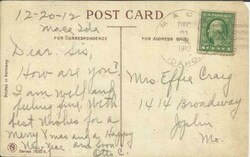 12-20-12
POST CARD
FOR CORRESPONDENCE
FOR ADDRESS
Dear Sis.
How are you?
I am well and
feeling fine. With
best Wishes for a
Merry Xmas and a Happy
New Year, and Soon
Otto C.
Mrs. Effie Craig
1414 Broadway
Joplin
Mo.
Printed in Germany
Series